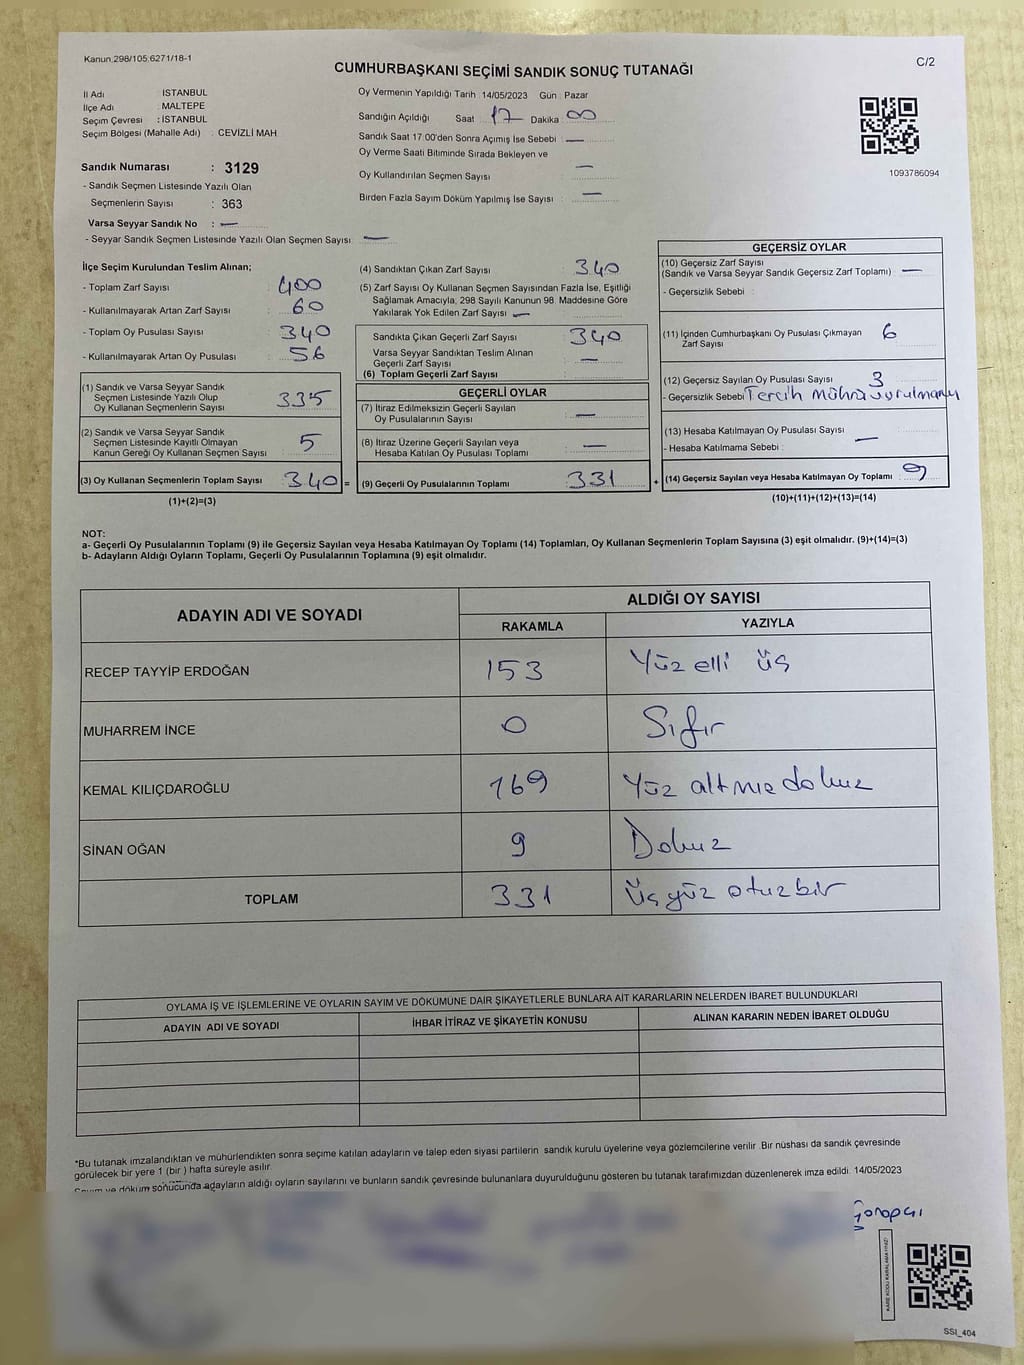 Kanun 298/105 6271/18-1
CUMHURBAŞKANI SEÇİMİ SANDIK SONUÇ TUTANAĞI
C/2
İl Adı : İSTANBUL
İlçe Adı : MALTEPE
Seçim Çevresi : İSTANBUL
Seçim Bölgesi (Mahalle Adı) : CEVİZLİ MAH
Sandık Numarası : 3129
- Sandık Seçmen Listesinde Yazılı Olan
Seçmenlerin Sayısı : 363
Varsa Seyyar Sandık No : —
- Seyyar Sandık Seçmen Listesinde Yazılı Olan Seçmen Sayısı : —
Oy Vermenin Yapıldığı Tarih : 14/05/2023 Gün : Pazar
Sandığın Açıldığı Saat : 17 Dakika : 00
Sandık Saat 17:00'den Sonra Açımış İse Sebebi : —
Oy Verme Saati Bitiminde Sırada Bekleyen ve
Oy Kullandırılan Seçmen Sayısı : —
Birden Fazla Sayım Döküm Yapılmış İse Sayısı : —
1093786094
İlçe Seçim Kurulundan Teslim Alınan;
- Toplam Zarf Sayısı : 400
- Kullanılmayarak Artan Zarf Sayısı : 60
- Toplam Oy Pusulası Sayısı : 340
- Kullanılmayarak Artan Oy Pusulası : 56
(1) Sandık ve Varsa Seyyar Sandık
Seçmen Listesinde Yazılı Olup
Oy Kullanan Seçmenlerin Sayısı : 335
(2) Sandık ve Varsa Seyyar Sandık
Seçmen Listesinde Kayıtlı Olmayan
Kanun Gereği Oy Kullanan Seçmen Sayısı : 5
(3) Oy Kullanan Seçmenlerin Toplam Sayısı : 340 =
(1)+(2)=(3)
(4) Sandıktan Çıkan Zarf Sayısı : 340
(5) Zarf Sayısı Oy Kullanan Seçmen Sayısından Fazla İse, Eşitliği
Sağlamak Amacıyla, 298 Sayılı Kanunun 98. Maddesine Göre
Yakılarak Yok Edilen Zarf Sayısı : —
Sandıkta Çıkan Geçerli Zarf Sayısı : 340
Varsa Seyyar Sandıktan Teslim Alınan
Geçerli Zarf Sayısı : —
(6) Toplam Geçerli Zarf Sayısı :
GEÇERLİ OYLAR
(7) İtiraz Edilmeksizin Geçerli Sayılan
Oy Pusulalarının Sayısı : —
(8) İtiraz Üzerine Geçerli Sayılan veya
Hesaba Katılan Oy Pusulası Toplamı : —
(9) Geçerli Oy Pusulalarının Toplamı : 331 +
GEÇERSİZ OYLAR
(10) Geçersiz Zarf Sayısı
(Sandık ve Varsa Seyyar Sandık Geçersiz Zarf Toplamı) : —
- Geçersizlik Sebebi :
(11) İçinden Cumhurbaşkanı Oy Pusulası Çıkmayan
Zarf Sayısı : 6
(12) Geçersiz Sayılan Oy Pusulası Sayısı : 3
- Geçersizlik Sebebi : Tercih Mührü vurulmamış
(13) Hesaba Katılmayan Oy Pusulası Sayısı : —
- Hesaba Katılmama Sebebi :
(14) Geçersiz Sayılan veya Hesaba Katılmayan Oy Toplamı : 9
(10)+(11)+(12)+(13)=(14)
NOT:
a- Geçerli Oy Pusulalarının Toplamı (9) ile Geçersiz Sayılan veya Hesaba Katılmayan Oy Toplamı (14) Toplamları, Oy Kullanan Seçmenlerin Toplam Sayısına (3) eşit olmalıdır. (9)+(14)=(3)
b- Adayların Aldığı Oyların Toplamı, Geçerli Oy Pusulalarının Toplamına (9) eşit olmalıdır.
ADAYIN ADI VE SOYADI
ALDIĞI OY SAYISI
RAKAMLA YAZIYLA
RECEP TAYYİP ERDOĞAN 153 Yüz elli üç
MUHARREM İNCE 0 Sıfır
KEMAL KILIÇDAROĞLU 169 Yüz altmış dokuz
SİNAN OĞAN 9 Dokuz
TOPLAM 331 Üç yüz otuz bir
OYLAMA İŞ VE İŞLEMLERİNE VE OYLARIN SAYIM VE DÖKÜMÜNE DAİR ŞİKAYETLERLE BUNLARA AİT KARARLARIN NELERDEN İBARET BULUNDUKLARI
ADAYIN ADI VE SOYADI İHBAR İTİRAZ VE ŞİKAYETİN KONUSU ALINAN KARARIN NEDEN İBARET OLDUĞU
*Bu tutanak imzalandıktan ve mühürlendikten sonra seçime katılan adayların ve talep eden siyasi partilerin sandık kurulu üyelerine veya gözlemcilerine verilir. Bir nüshası da sandık çevresinde
görülecek bir yere 1 (bir ) hafta süreyle asılır.
Sayım ve döküm sonucunda adayların aldığı oyların sayılarını ve bunların sandık çevresinde bulunanlara duyurulduğunu gösteren bu tutanak tarafımızdan düzenlenerek imza edildi. 14/05/2023
SSI_404